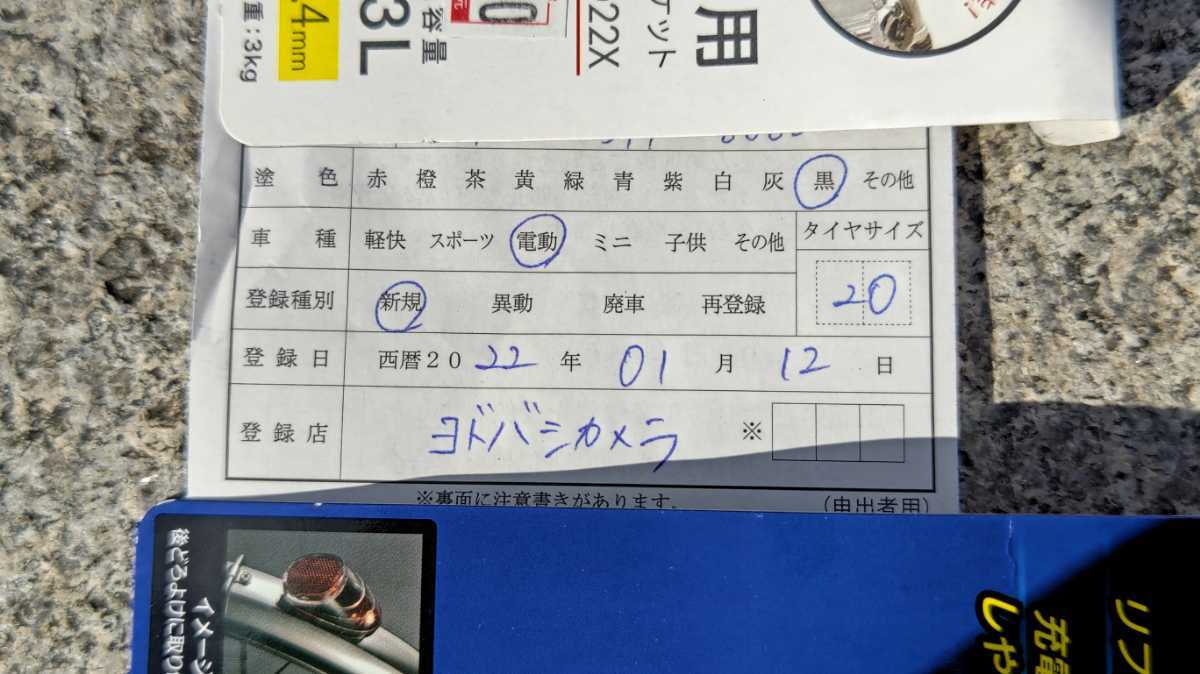 用
ケット
22X
0
元
容量
3L
.4mm
重：3kg
塗色 赤 橙 茶 黄 緑 青 紫 白 灰 黒 その他
車種 軽快 スポーツ 電動 ミニ 子供 その他 タイヤサイズ
登録種別 新規 異動 廃車 再登録 20
登録日 西暦２０22年01月12日
登録店 ヨドバシカメラ ※
※裏面に注意書きがあります。 (申出者用)
リフ
充電
しゃ
イメージ
後どろよけに取り